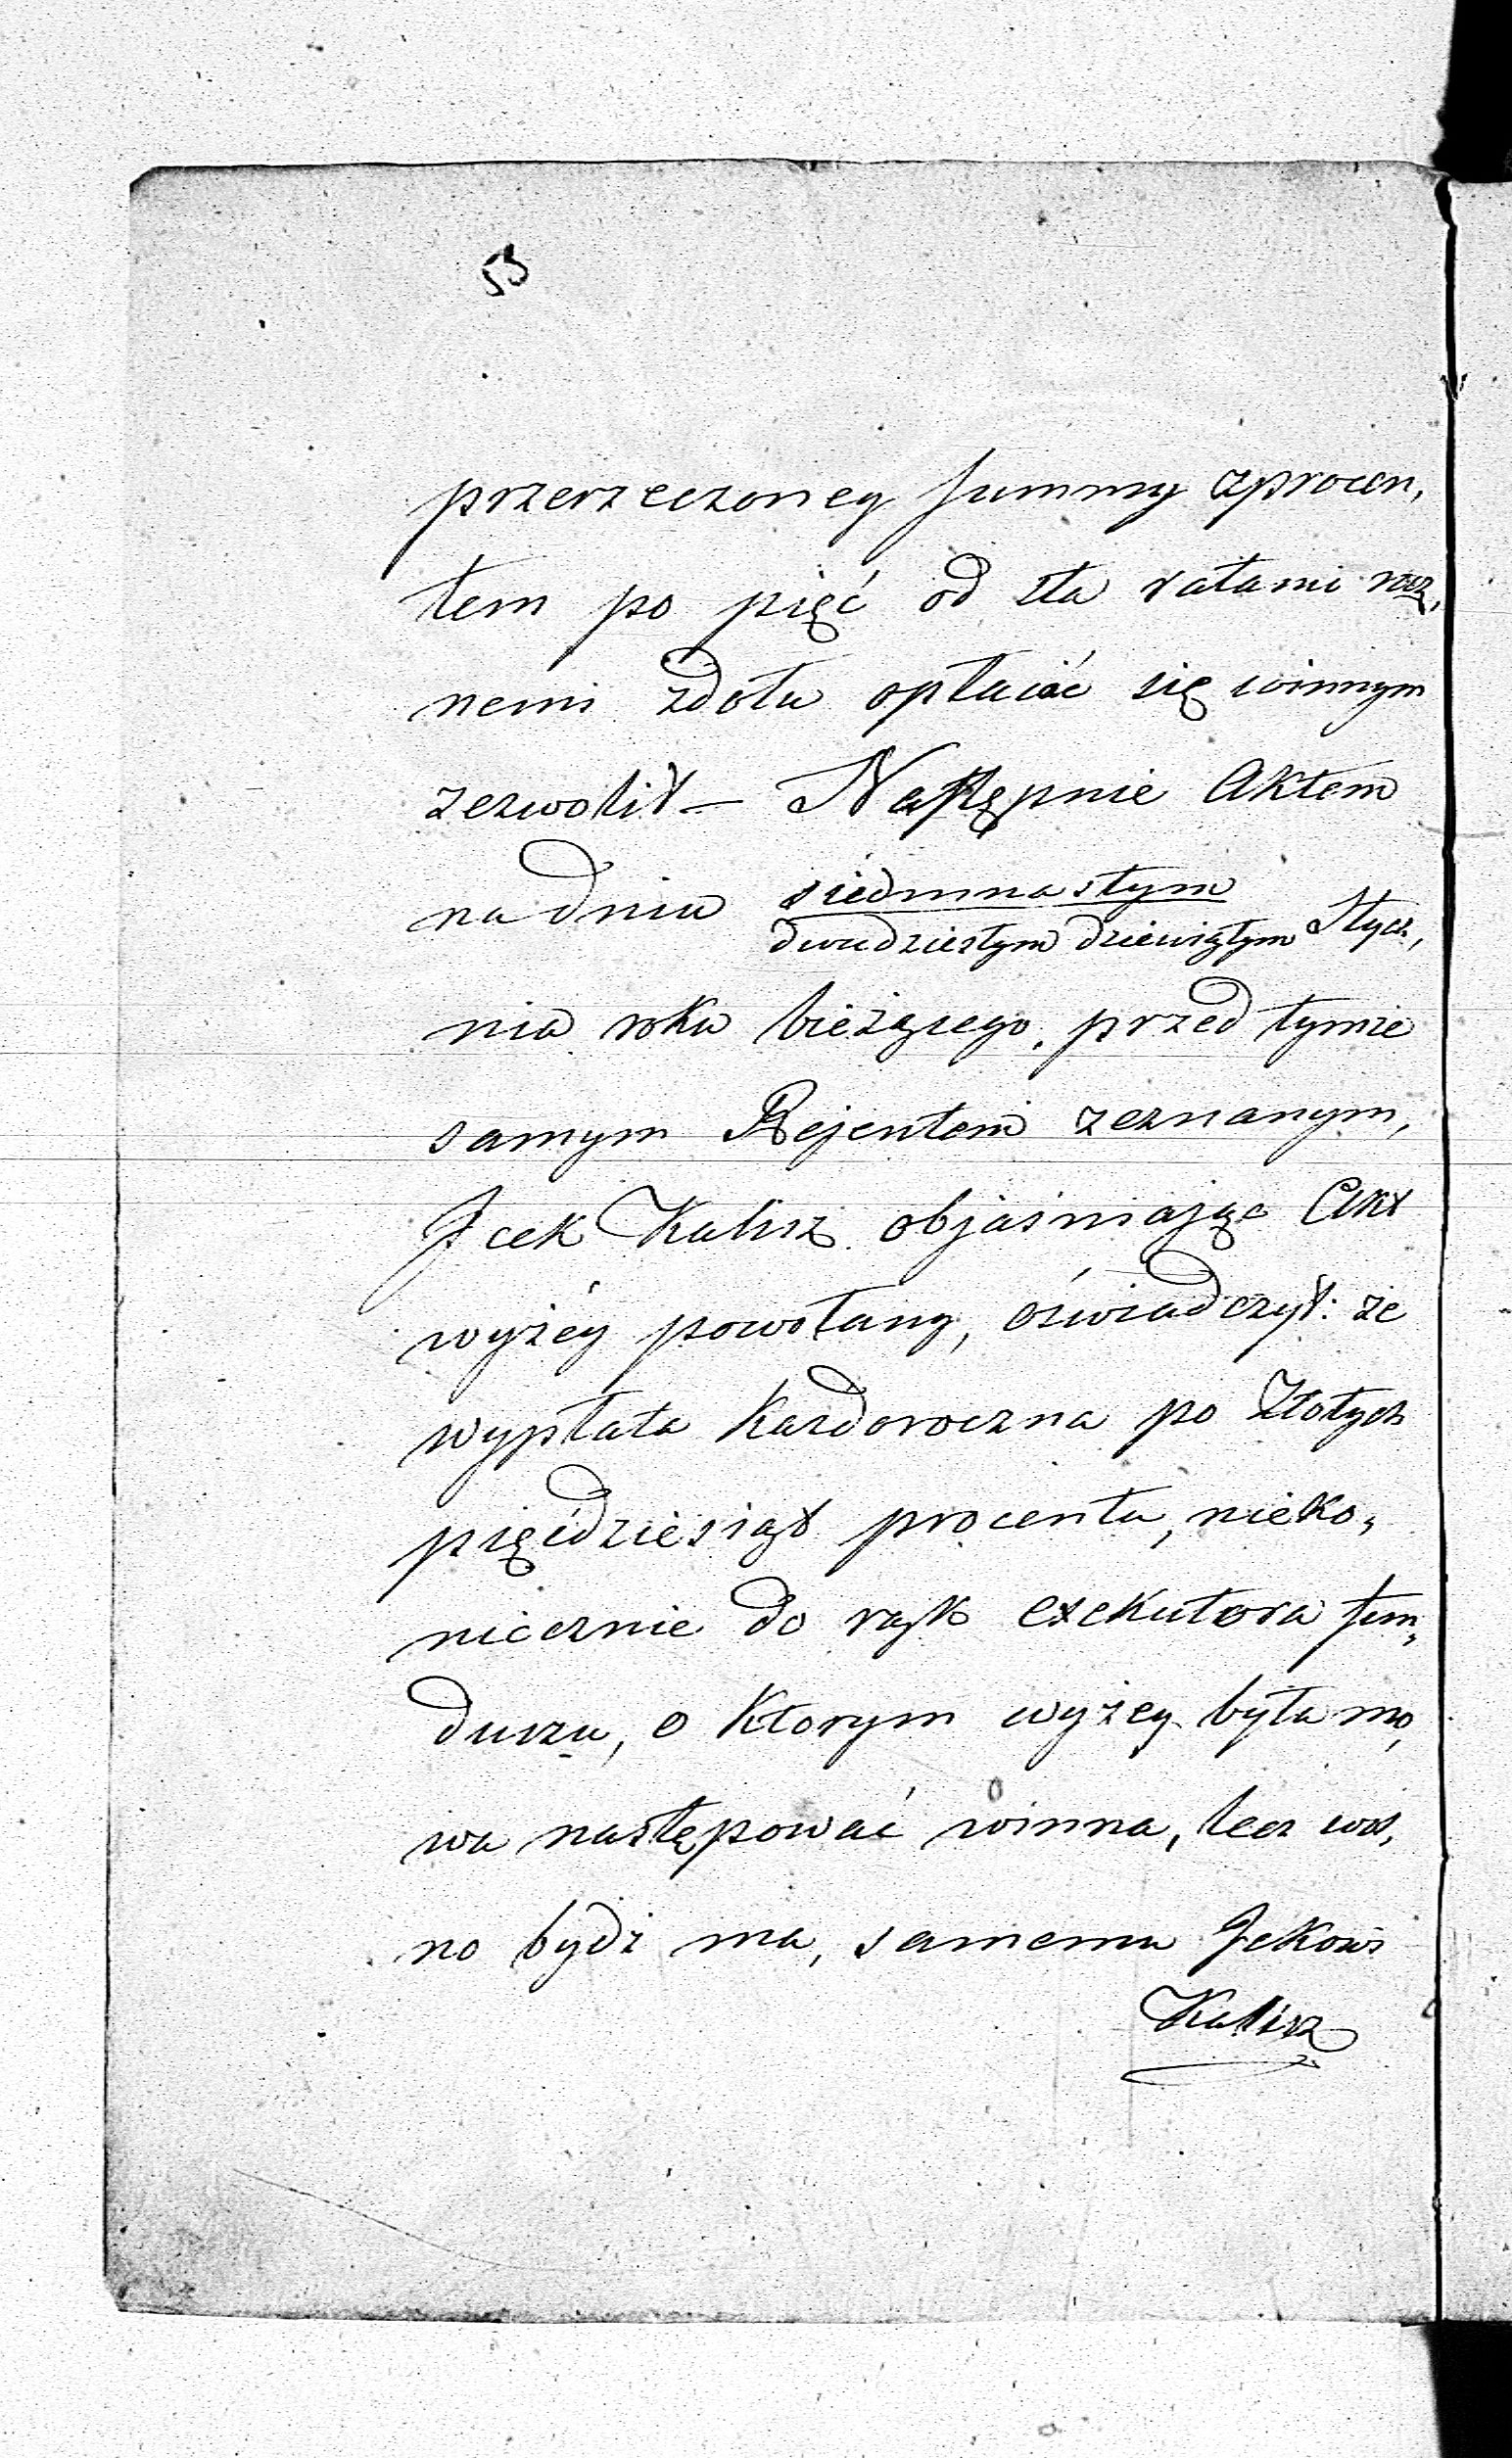 53
przerzeczoney summy zprocen,
tem po pięć od sta ratami rocz,
nemi zdołu opłacać się winnym
zezwolił — Następnie Aktem
na dniu siedmnastym
dwudziestym dziewiątym Stycz,
nia roku bieżącego, przed tymże
samym Rejentem zeznanym,
Icek Kalisz objaśniając Akt
wyżéy powołany, oświadczył: że
wypłata każdoroczna po Złotych
pięćdziesiąt procentu, nieko,
niecznie do rąk exekutora fun,
duszu, o którym wyżey była mo,
wa następować winna, lecz wol,
no bydź ma, samemu Ickowi
Kalisz